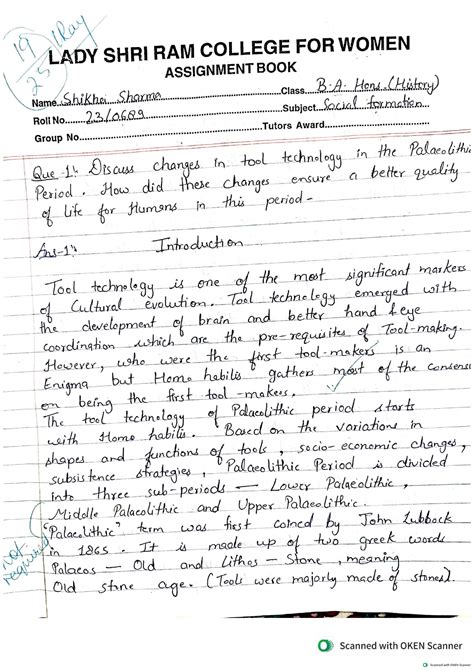 19
25
LADY SHRI RAM COLLEGE FOR WOMEN
ASSIGNMENT BOOK
Name Shikha Sharma Class B.A. Hons. (History)
Roll No. 23/0689 Subject Social formation
Group No. Tutors Award
Que-1:- Discuss changes in tool technology in the Palaeolithic
Period. How did these changes ensure a better quality
of life for Humans in this period-
Ans-1:-
Introduction
Tool technology is one of the most significant markers
of Cultural evolution. Tool technology emerged with
the development of brain and better hand & eye
coordination which are the pre-requisites of Tool-making.
However, who were the first tool-makers is an
Enigma but Homo habilis gathers most of the consensus
on being the first tool-makers.
The tool technology of Palaeolithic period starts
with Homo habilis. Based on the variations in
shapes and functions of tools, socio-economic changes,
subsistence strategies, Palaeolithic Period is divided
into three sub-periods — Lower Palaeolithic,
Middle Palaeolithic and Upper Palaeolithic.
"Palaeolithic" term was first coined by John Lubbock
in 1865. It is made up of two greek words
Palaeos — Old and Lithos — Stone, meaning
Old stone age. (Tools were majorly made of stones).
not
required
Scanned with OKEN Scanner